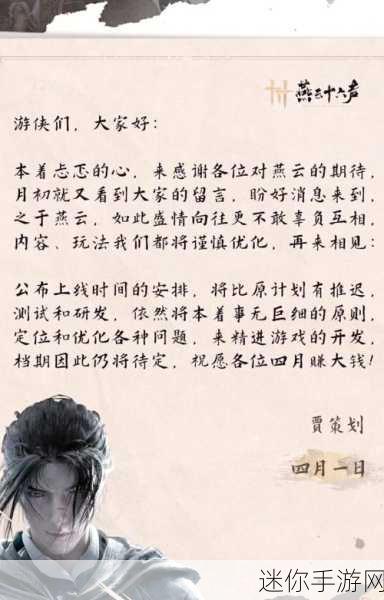 燕云十六声
游侠们，大家好：
本着忐忑的心，来感谢各位对燕云的期待，
月初就又看到大家的留言，盼好消息来到，
之于燕云，如此盛情向往更不敢辜负互相，
内容、玩法我们都将谨慎优化，再来相见：
公布上线时间的安排，将比原计划有推迟，
测试和研发，依然将本着事无巨细的原则，
定位和优化各种问题，来精进游戏的开发，
档期因此仍将待定，祝愿各位四月赚大钱！
贾策划
四月一日
迷你手游网